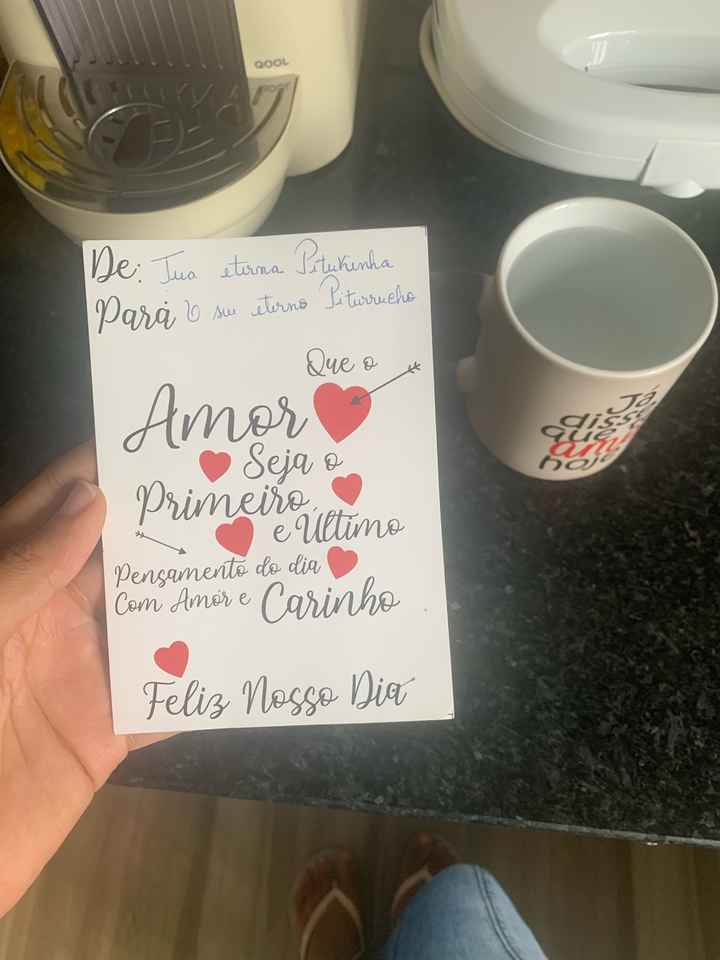 QOOL
De: Tua eterna Pitukinha
Pará O seu eterno Piturrucho
Que o
Amor
Seja o
Primeiro,
e Último
Pensamento do dia
Com Amor e Carinho
Feliz Nosso Dia
Já
disse
que
hoje